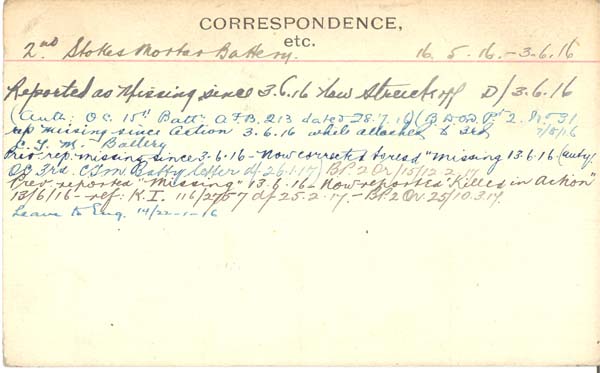 CORRESPONDENCE,
etc.
2nd Stokes Mortar Battery. 16. 5. 16. - 3.6.16
Reported as Missing since 3.6.16 Now Struck off D/ 3.6.16
(Auth: O.C. 15th Batt: A.F.B. 213 dated 28.7.16) Pt 2.
rep missing since Action 3.6.16 while attached to 3rd
L. T. M. Battery
Prev. rep. missing since 3-6-16 - Now corrected to read "missing 13.6.16 (auty.
OC 3rd. C.T.M. Batty letter d/ 26-1-17) B.P. 2 Or/15/12-2-17
Prev. reported "Missing" 13.6.16 - Now reported "Killed in Action"
13/6/16 - ref: K.I. d/ 25.2.17. - B.P. 2 Or. 25/10.3.17.
Leave to Eng. 14/22-1-16